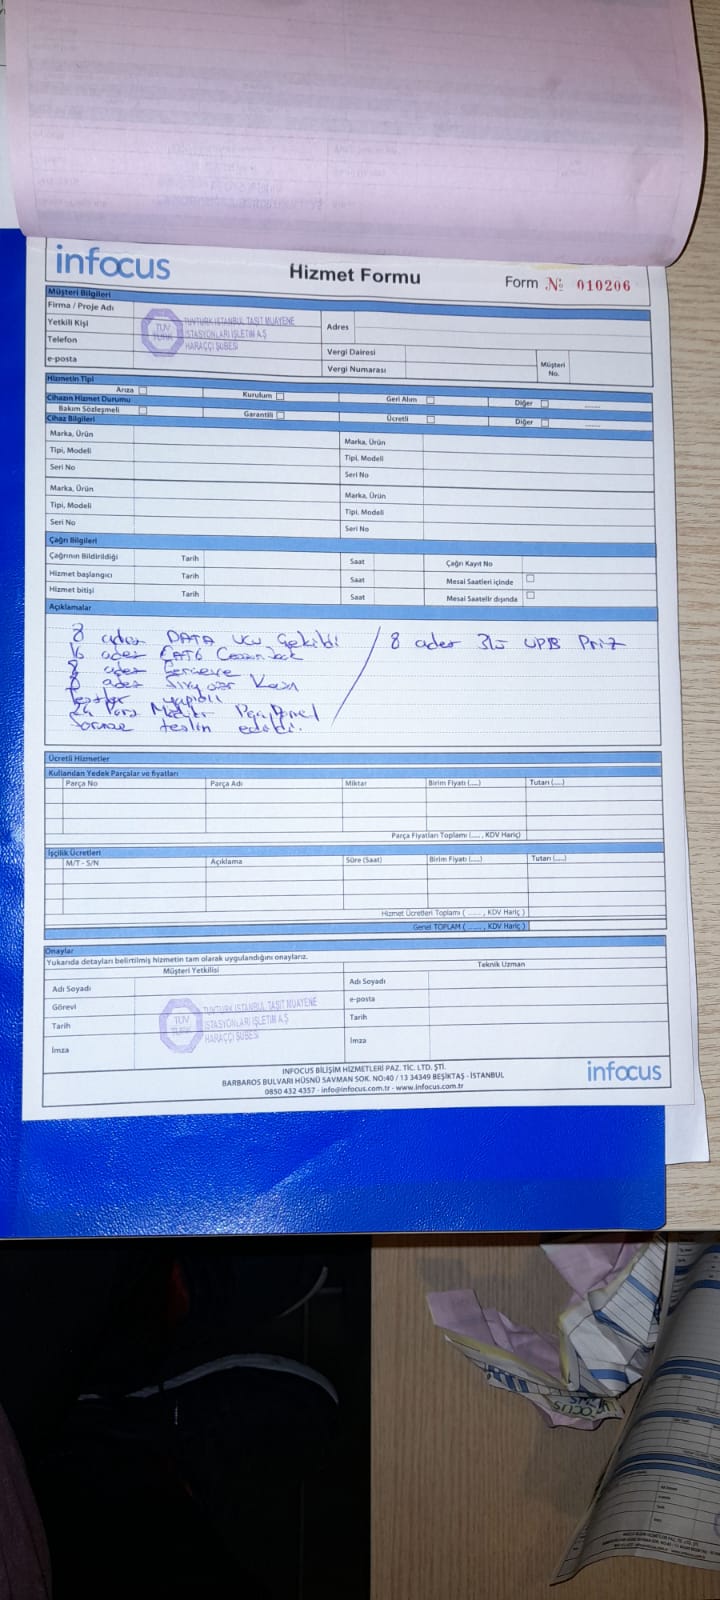 infocus
Hizmet Formu
Form № 010206
Müşteri Bilgileri
Firma / Proje Adı
Yetkili Kişi
Telefon
e-posta
TÜV TURK
TÜVTURK İSTANBUL TAŞIT MUAYENE
İSTASYONLARI İŞLETİM A.Ş
HARAÇÇI ŞUBESİ
Adres
Vergi Dairesi
Vergi Numarası
Müşteri No.
Hizmetin Tipi
Arıza Kurulum Geri Alım Diğer ........
Cihazın Hizmet Durumu
Bakım Sözleşmeli Garantili Ücretli Diğer ........
Cihaz Bilgileri
Marka, Ürün Marka, Ürün
Tipi, Modeli Tipi, Modeli
Seri No Seri No
Marka, Ürün Marka, Ürün
Tipi, Modeli Tipi, Modeli
Seri No Seri No
Çağrı Bilgileri
Çağrının Bildirildiği Tarih Saat Çağrı Kayıt No
Hizmet başlangıcı Tarih Saat Mesai Saatleri içinde
Hizmet bitişi Tarih Saat Mesai Saatelir dışında
Açıklamalar
8 adet DATA ucu çekildi / 8 adet 3lü UPB Priz
16 adet CAT6
8 adet Çerçeve
8 adet
Testler yapıldı
24
teslim edildi.
Ücretli Hizmetler
Kullanılan Yedek Parçalar ve fiyatları
Parça No Parça Adı Miktar Birim Fiyatı (.....) Tutarı (.....)
Parça Fiyatları Toplamı (....., KDV Hariç)
İşçilik Ücretleri
M/T - S/N Açıklama Süre (Saat) Birim Fiyatı (.....) Tutarı (.....)
Hizmet Ücretleri Toplamı ( ....... , KDV Hariç )
Genel TOPLAM ( ....... , KDV Hariç )
Onaylar
Yukarıda detayları belirtilmiş hizmetin tam olarak uygulandığını onaylarız.
Müşteri Yetkilisi Teknik Uzman
Adı Soyadı Adı Soyadı
Görevi e-posta
Tarih Tarih
İmza İmza
TÜV TURK
TÜVTURK İSTANBUL TAŞIT MUAYENE
İSTASYONLARI İŞLETİM A.Ş
HARAÇÇI ŞUBESİ
INFOCUS BİLİŞİM HİZMETLERİ PAZ. TİC. LTD. ŞTİ.
BARBAROS BULVARI HÜSNÜ SAVMAN SOK. NO:40 / 13 34349 BEŞİKTAŞ - İSTANBUL
0850 432 4357 - info@infocus.com.tr - www.infocus.com.tr
infocus